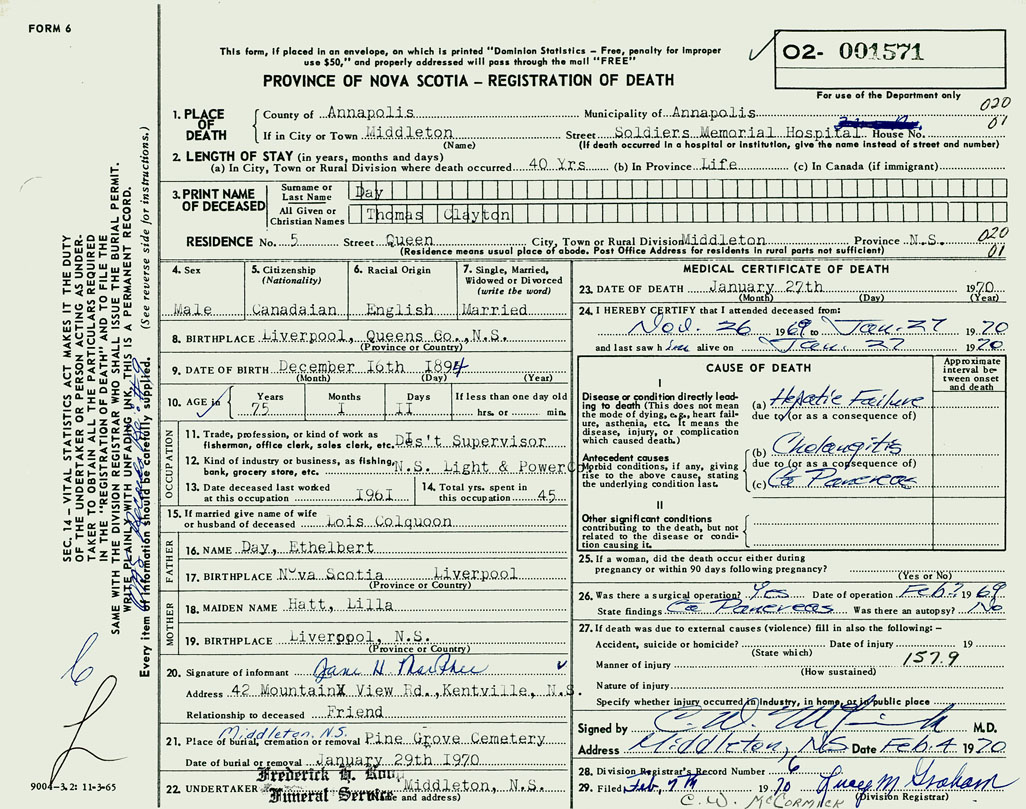 FORM 6
This form, if placed in an envelope, on which is printed "Dominion Statistics – Free, penalty for improper
use $50," and properly addressed will pass through the mail "FREE"
PROVINCE OF NOVA SCOTIA – REGISTRATION OF DEATH
O2- 001571
For use of the Department only
020
01
1. PLACE OF DEATH
County of Annapolis Municipality of Annapolis
If in City or Town Middleton Street Soldiers Memorial Hospital House No.
(Name) (If death occurred in a hospital or institution, give the name instead of street and number)
2. LENGTH OF STAY (in years, months and days)
(a) In City, Town or Rural Division where death occurred 40 Yrs (b) In Province Life (c) In Canada (if immigrant)
3. PRINT NAME OF DECEASED
Surname or Last Name Day
All Given or Christian Names Thomas Clayton
RESIDENCE No. 5 Street Queen City, Town or Rural Division Middleton Province N.S.
(Residence means usual place of abode. Post Office Address for residents in rural parts not sufficient)
020
01
4. Sex
Male
5. Citizenship
(Nationality)
Canadaian
6. Racial Origin
English
7. Single, Married,
Widowed or Divorced
(write the word)
Married
8. BIRTHPLACE Liverpool, Queens Co.,N.S.
(Province or Country)
9. DATE OF BIRTH December 16th 1894
(Month) (Day) (Year)
10. AGE in Years 75 Months I Days II If less than one day old
hrs. or min.
OCCUPATION
11. Trade, profession, or kind of work as
fisherman, office clerk, sales clerk, etc. Dis't Supervisor
12. Kind of industry or business, as fishing,
bank, grocery store, etc. N.S. Light & Power Co
13. Date deceased last worked
at this occupation I96I
14. Total yrs. spent in
this occupation 45
15. If married give name of wife
or husband of deceased Lois Colquoon
FATHER
16. NAME Day, Ethelbert
17. BIRTHPLACE Nova Scotia Liverpool
(Province or Country)
MOTHER
18. MAIDEN NAME Hatt, Lilla
19. BIRTHPLACE Liverpool, N.S.
(Province or Country)
20. Signature of informant Jane H
Address 42 MountainX View Rd.,Kentville, N.S.
Relationship to deceased Friend
Middleton, N.S.
21. Place of burial, cremation or removal Pine Grove Cemetery
Date of burial or removal January 29th 1970
22. UNDERTAKER Frederick H. Middleton, N.S.
Funeral Service and address)
MEDICAL CERTIFICATE OF DEATH
23. DATE OF DEATH January 27th 1970
(Month) (Day) (Year)
24. I HEREBY CERTIFY that I attended deceased from:
Nov. 26 1969 to Jan. 27 1970
and last saw him alive on Jan. 27 1970
CAUSE OF DEATH
Approximate
interval be-
tween onset
and death
I
Disease or condition directly lead-
ing to death (This does not mean
the mode of dying, e.g., heart fail-
ure, asthenia, etc. It means the
disease, injury, or complication
which caused death.)
(a) Hepatic Failure
due to (or as a consequence of)
Antecedent causes
Morbid conditions, if any, giving
rise to the above cause, stating
the underlying condition last.
(b) Cholangitis
due to (or as a consequence of)
(c) Ca Pancreas
II
Other significant conditions
contributing to the death, but not
related to the disease or condi-
tion causing it.
25. If a woman, did the death occur either during
pregnancy or within 90 days following pregnancy?
(Yes or No)
26. Was there a surgical operation? Yes Date of operation Feb? 1969
State findings Ca Pancreas Was there an autopsy? No
27. If death was due to external causes (violence) fill in also the following: –
Accident, suicide or homicide? Date of injury 19
(State which)
157.9
Manner of injury
(How sustained)
Nature of injury
Specify whether injury occurred in industry, in home, or in public place
Signed by C. W. M.D.
Address Middleton, NS Date Feb. 4 1970
28. Division Registrar's Record Number 6
29. Filed Feb. 7th 1970 Lucy M Graham
(Division Registrar)
C. W. McCORMACK
SEC. 14 – VITAL STATISTICS ACT MAKES IT THE DUTY
OF THE UNDERTAKER OR PERSON ACTING AS UNDER-
TAKER TO OBTAIN ALL THE PARTICULARS REQUIRED
IN THE "REGISTRATION OF DEATH" AND TO FILE THE
SAME WITH THE DIVISION REGISTRAR WHO SHALL ISSUE THE BURIAL PERMIT.
WRITE PLAINLY WITH UNFADING INK, THIS IS A PERMANENT RECORD.
Every item of information should be carefully supplied. (See reverse side for instructions.)
9004-3.2: 11-3-65